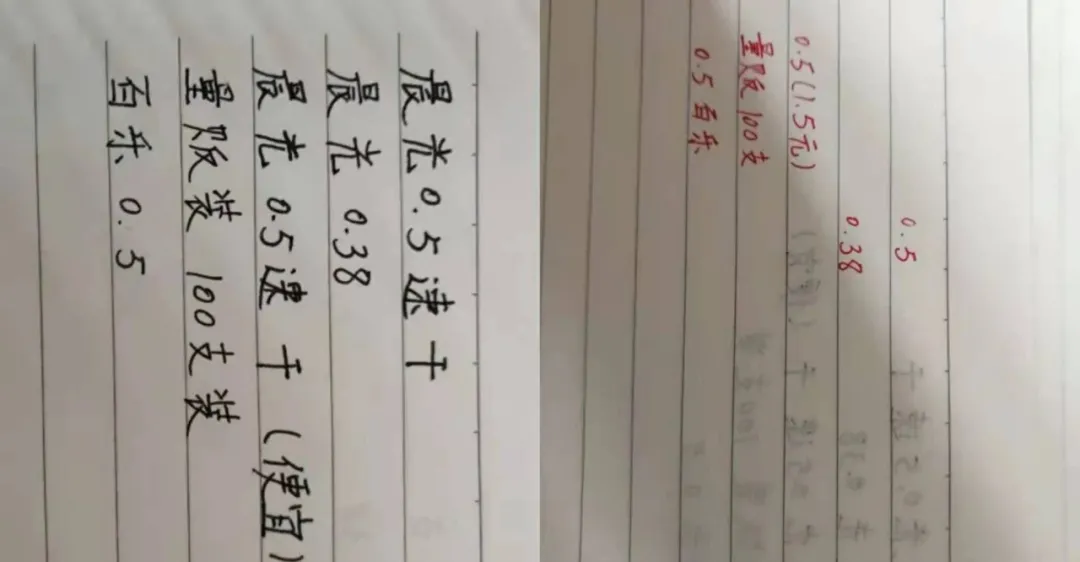 晨光0.5速干
晨光 0.38
晨光 0.5速干(便宜)
量贩装 100支装
百乐 0.5
0.5
0.38
0.5(1.5元)
量贩 100支
0.5百乐